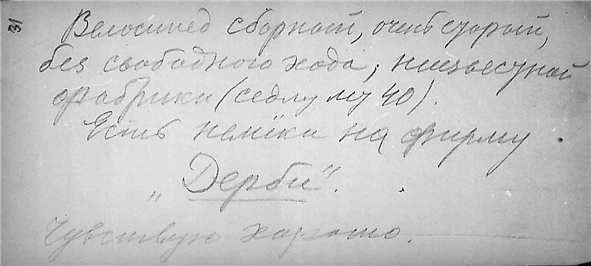 31
Велосипед сборный, очень старый,
без свободного хода; неизвестной
фабрики (седлу 40).
Есть намёки на фирму
„Дерби“.
Чувствую хорошо.